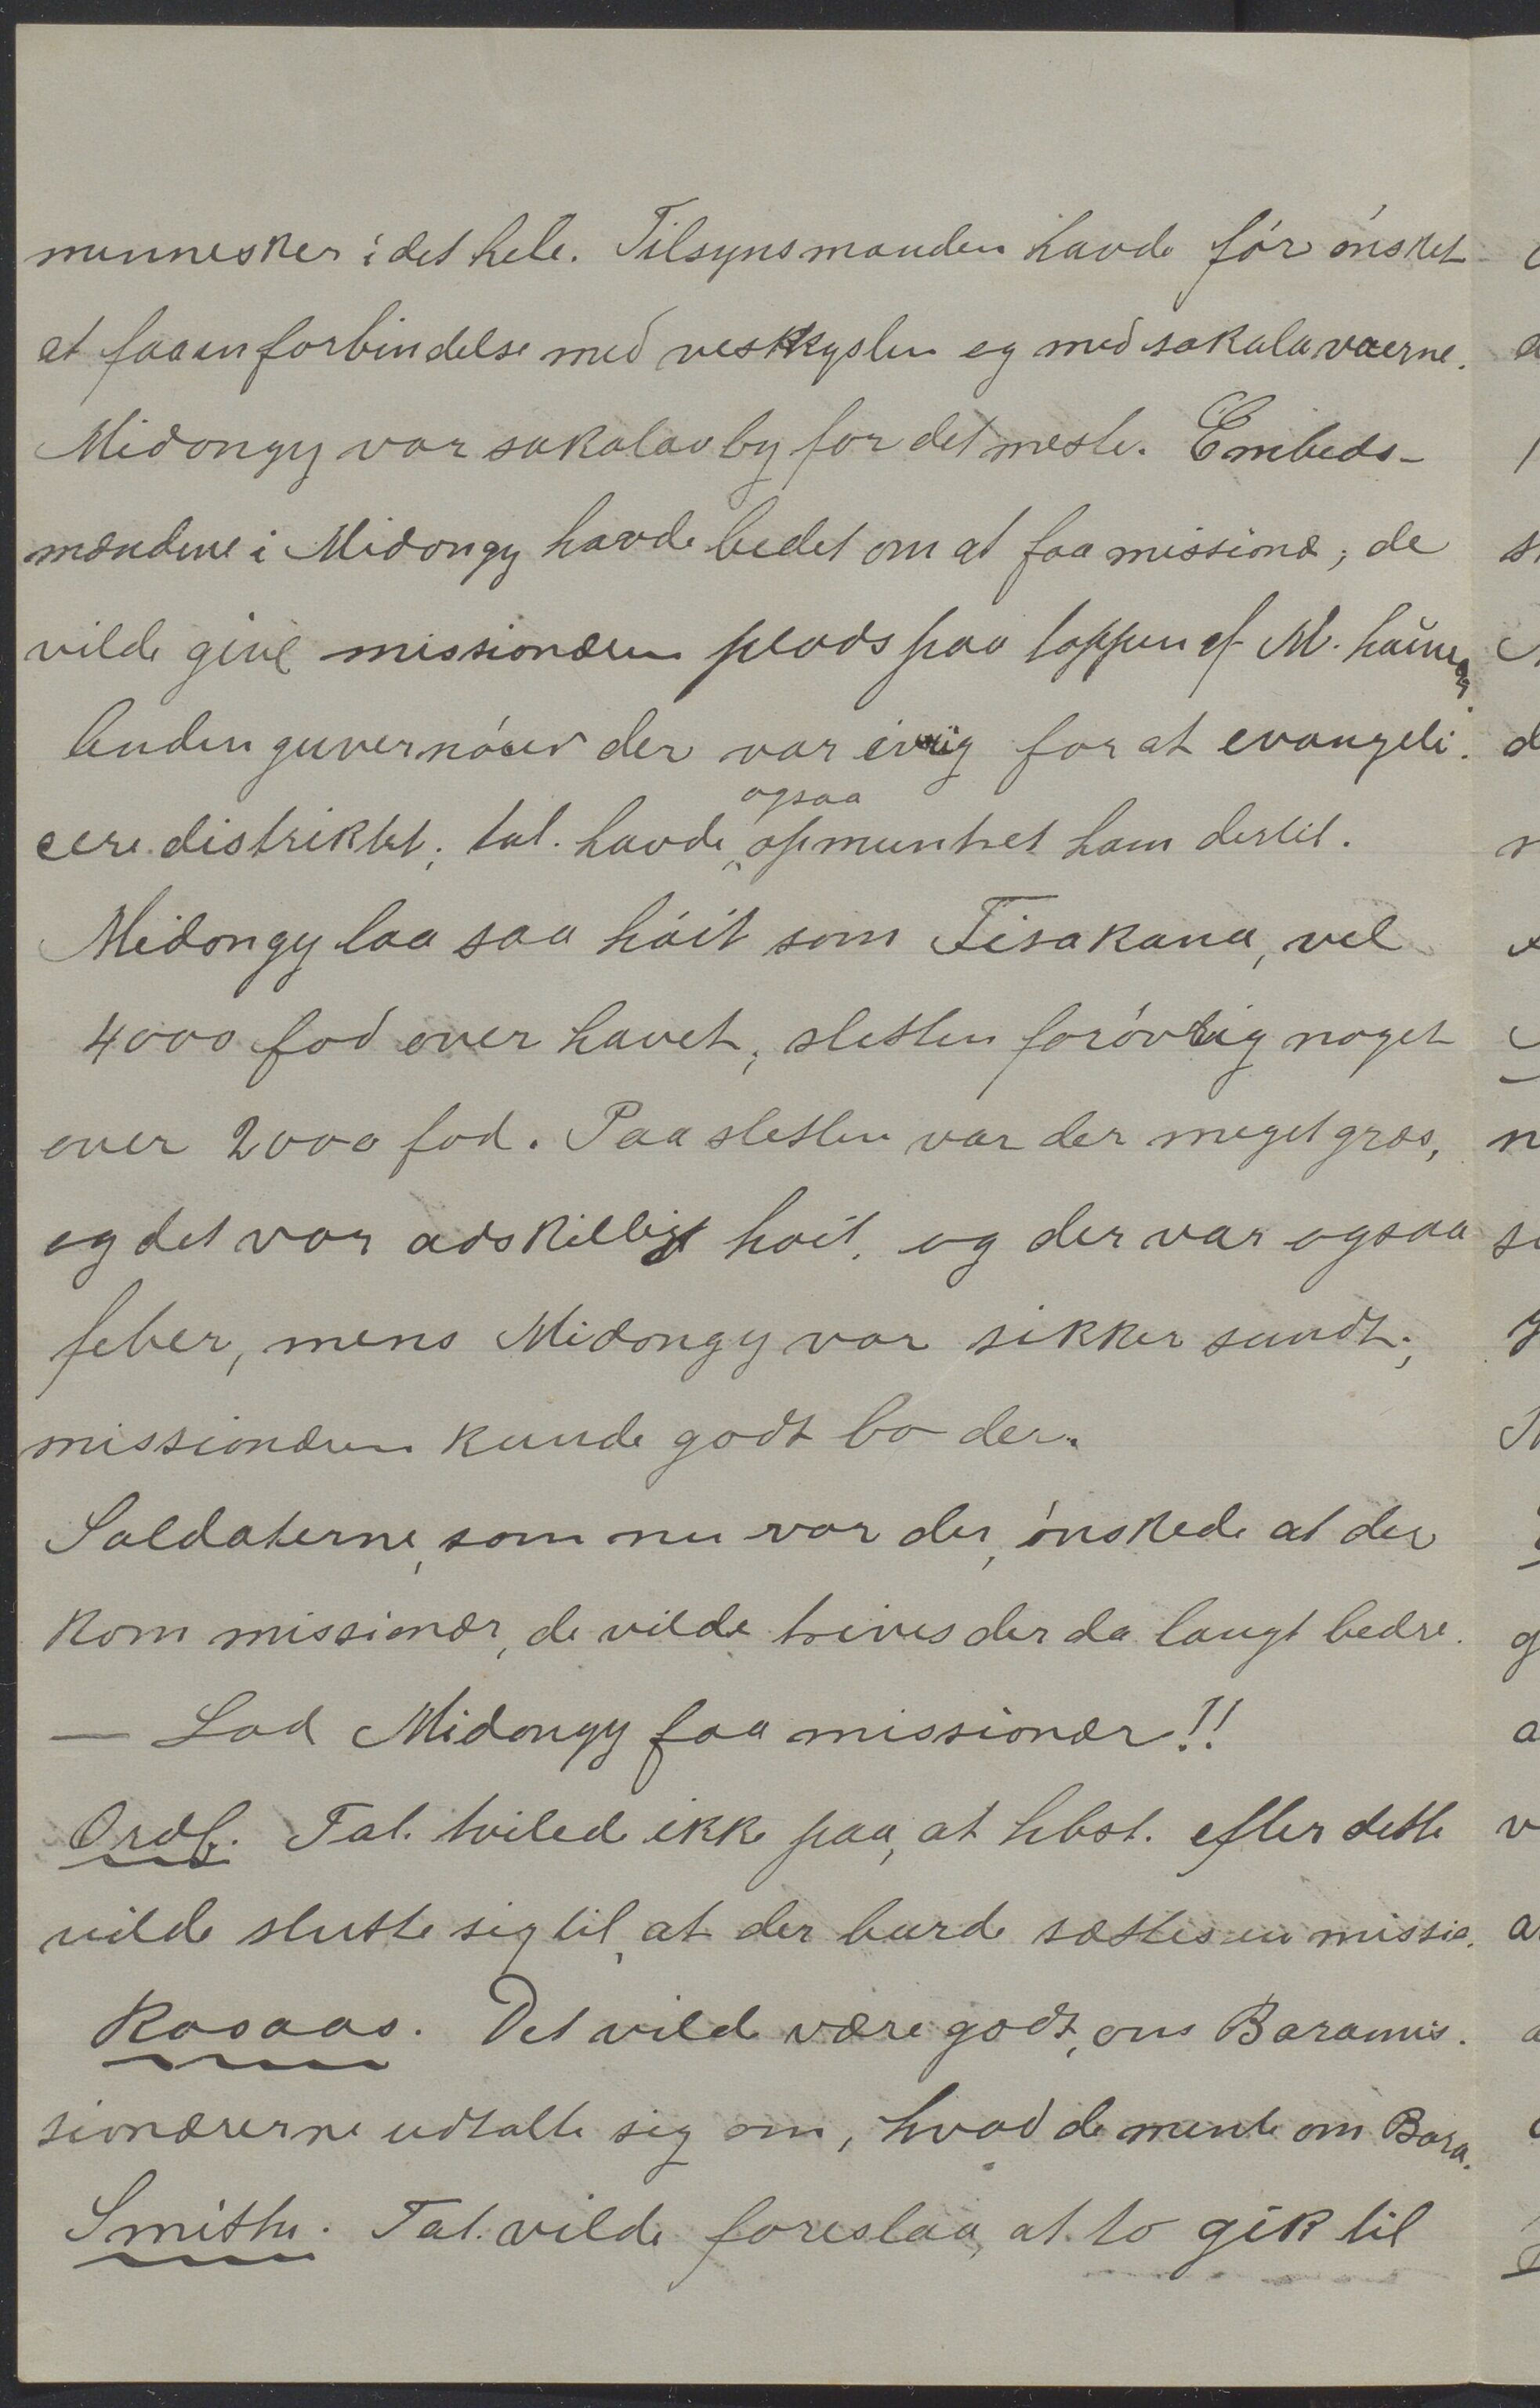 mennesker i det hele. Tilsynsmanden havde før ønsket
at faa en forbindelse med vestkysten og med sakalavaerne.
Midongy var sakalavby for det meste. Embeds-
mændene i Midongy havde bedet om at faa missionæ, de
vilde give missionæren plads paa toppen af M. haúne og
anden guvernøør der var ivrig for at evangeli.
cere distriktet; tal. havde ogsaa opmuntret ham dertil.
Midongy laa saa høit som Tisakana, vel
4000 fod over havet; sletten forøvrig noget
over 2000 fod. Paa sletten var der meget græs,
og det var adskilligt hoit. og der var ogsaa
feber, mens Midongy var sikker sundt;
missionæren kunde godt bo der.
Soldaterne, som nu var der, ønskede at der
kom missionær, de vilde trives der da langt bedre.
— Lad Midongy faa missionær!!
Ordf. Tal. tvilede ikke paa, at hbst. efter dette
vilde slutte sig til, at der burde sættes en missio.
Rosaas. Det vilde være godt, om Baramis.
sionærerne udtalte sig om, hvad de mente om Bara.
Smith. Tal. vilde foreslaa, at to gik til